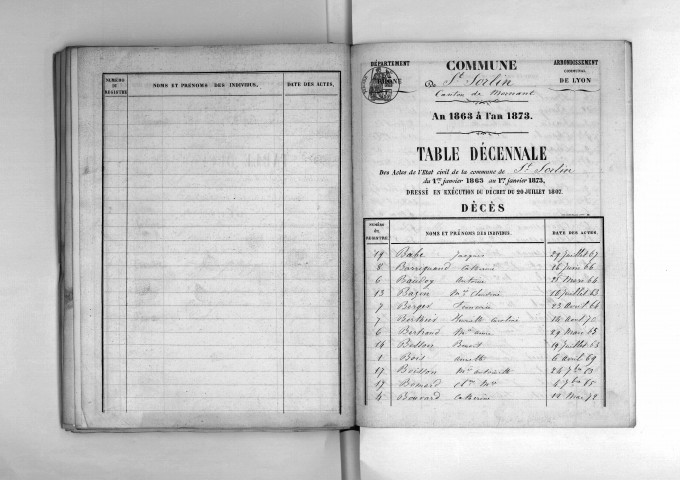 NUMÉRO DU REGISTRE NOMS ET PRÉNOMS DES INDIVIDUS, DATE DES ACTES,
DÉPARTEMENT COMMUNE ARRONDISSEMENT
COMMUNAL
RHONE De St Sorlin DE LYON
Canton de Mornant
An 1863 à l'an 1873.
TABLE DÉCENNALE
Des Actes de l'Etat civil de la commune de St Sorlin
du 1er janvier 1863 au 1er janvier 1873,
DRESSÉ EN EXÉCUTION DU DÉCRET DU 20 JUILLET 1807.
DÉCÈS
NUMÉRO du REGISTRE NOMS ET PRÉNOMS DES INDIVIDUS. DATE DES ACTES.
19 Babe Jacques 29 Juillet 67
8 Barriquand Catherine 26 Juin 66
6 Baudoy Antoine 28 Mars 64
13 Bazin Me Claudine 16 Juillet 63
7 Berger 23 Avril 64
7 Berthier Caroline 14 Aout 70
6 Bertrand Me Anne 29 Mars 63
14 Besson Benoit 19 Juillet 65
1 Boit 6 Avril 69
17 Boisson Me Antoinette 24 7bre 63
17 4 7bre 65
4 Bouvard Catherine 14 Mai 72